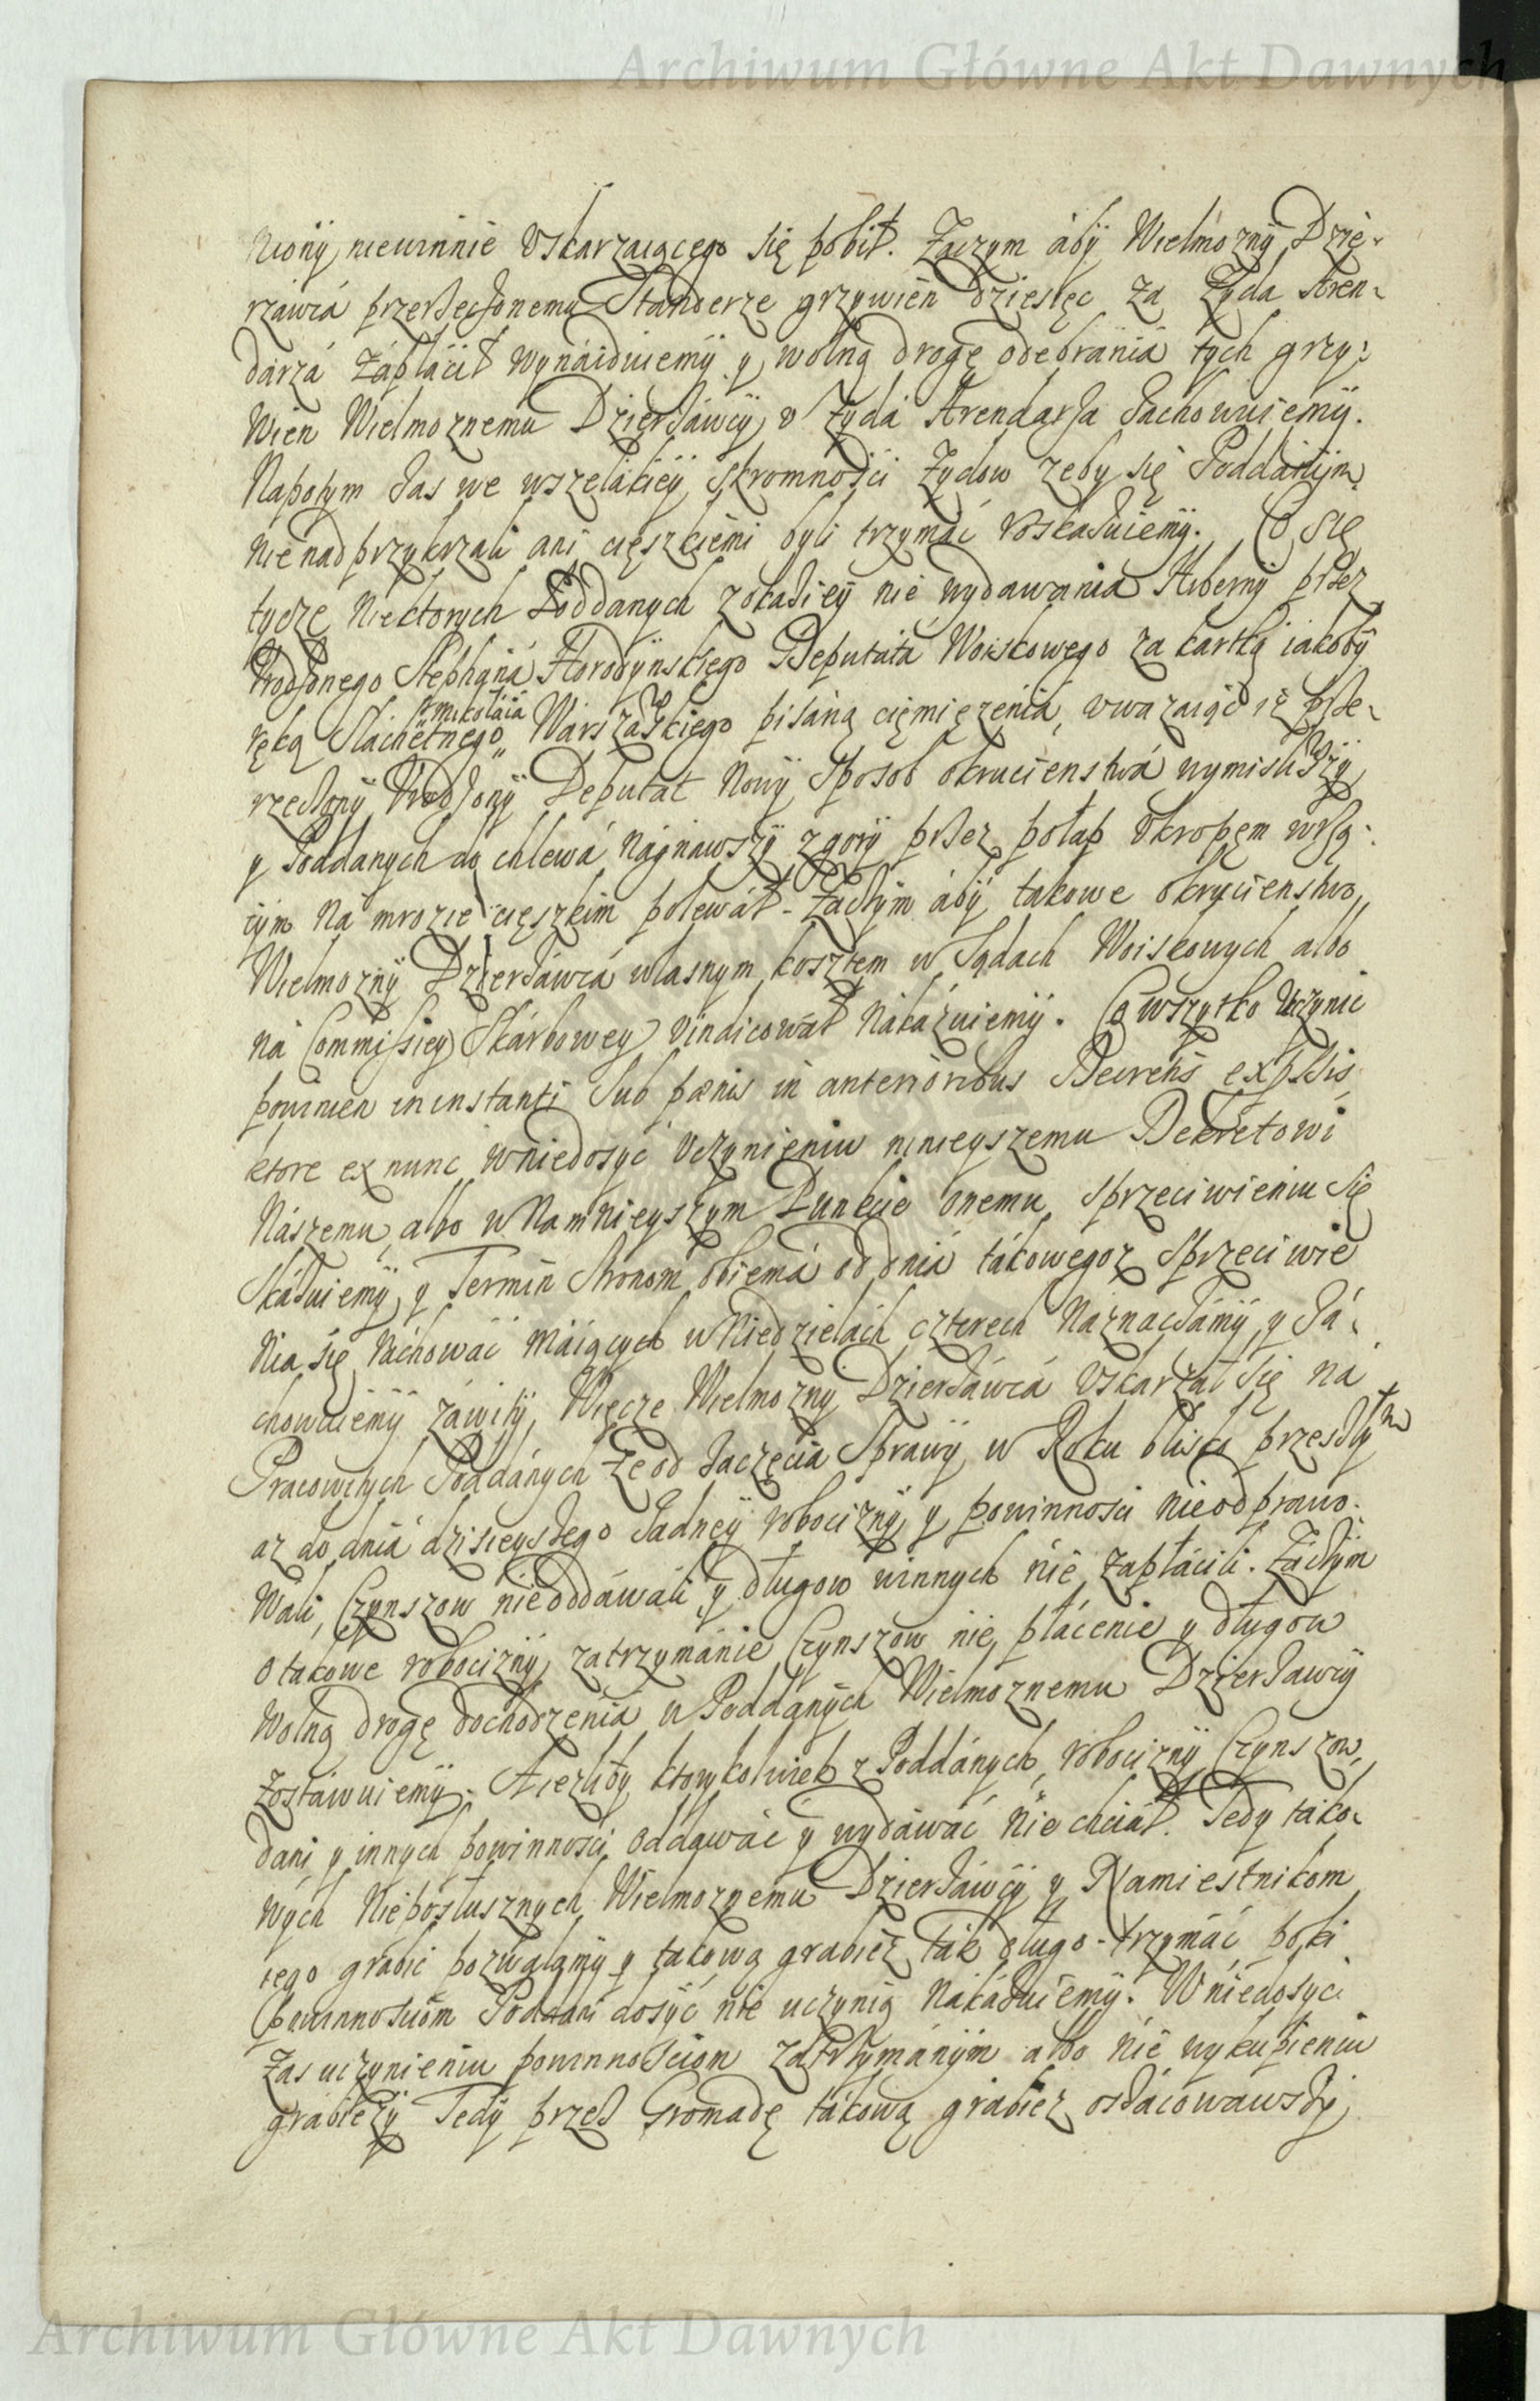 Archiwum Główne Akt Dawnych
niony niewinnie Vskarzaiącego się pobił. Zaczym áby Wielmozny Dzie-
rzawcá przerzeczonemu Standerze grzywien dziesięc za Zyda Aren-
darzá zápłácił wynáiduiemy y wolną drogę odebránia tych grzy-
wien Wielmoznemu Dzierżáwcy v Zydá Arendarza zachowuiemy.
Napotym zas we wszelákiey skromności Zydow zeby się Poddánym
nie nadprzykrzali ani cięszkiemi byli trzymać roskazuiemy. Co się
tycze niektorych Poddanych z okaziey nie wydawania Hiberny przez
Vrodzonego Stephaná Horodyńskiego Deputatá Woiskowego za kartką iakoby
ręką Slachetnego Mikołáia Warszáwskiego pisáną cięmięzenia, vwazaiąc isz prze-
rzeczony Vrodzony Deputat nowy sposob okrucienstwá wymisliwszy
y Poddanych do chlewá nágnawszy z gory przez połap Vkropem wrzą-
cym ná mrozie cięszkim polewáł. Zaczym áby takowe okrucienstwo
Wielmozny Dzierzáwcá własnym kosztem w Sądach Woiskowych albo
ná Commissiey Skárbowey vindicowáł nákázuiemy. Co wszytko Vczynic
powinien in instanti sub pœnis in anterioribus Decretis expssis
ktore ex nunc w niedosyć Vczynieniu ninieyszemu Dekretowi
Nászemu albo w namnieyszym Punkcie onemu sprzeciwieniu się
skázuiemy y Termin stronom obiemá od dniá tákowegoz sprzeciwie
nia się ráchowáć máiących w niedzielách czterech náznaczámy y zá-
chowuiemy záwity. Więcze Wielmozny Dzierzáwcá Vskarzał się ná
Pracowitych Poddánych ze od zaczęcia Sprawy w Roku blisko przeszłym
az do dniá dzisieyszego zadney robocizny y powinnosci nie odprawo-
wáli, Czynszow nie oddáwáli y długow winnych nie zapłácili. Záczym
o takowe robocizny zatrzymánie Czynszow nie płácenie y długow
wolną drogę dochodzenia u Poddanych Wielmoznemu Dzierzawcy
zostáwuiemy. A iezliby ktorykolwiek z Poddánych robocizny Czynszow
dani y innych powinności oddawáć y wydáwáć nie chciáł. Tedy tako-
wych nieposłusznych Wielmoznemu Dzierzáwcy y Namiestnikom
iego grabic pozwalamy y takową grabiez ták długo trzymáć poki
powinnosciom Poddani dosyć nie uczynią nákázuiemy. W niedosyc
zas uczynieniu powinnosciom zatrzymánym albo nie wykupieniu
grabiezy Tedy przez Gromadę tákową grabiez oszácowawszy
Archiwum Główne Akt Dawnych